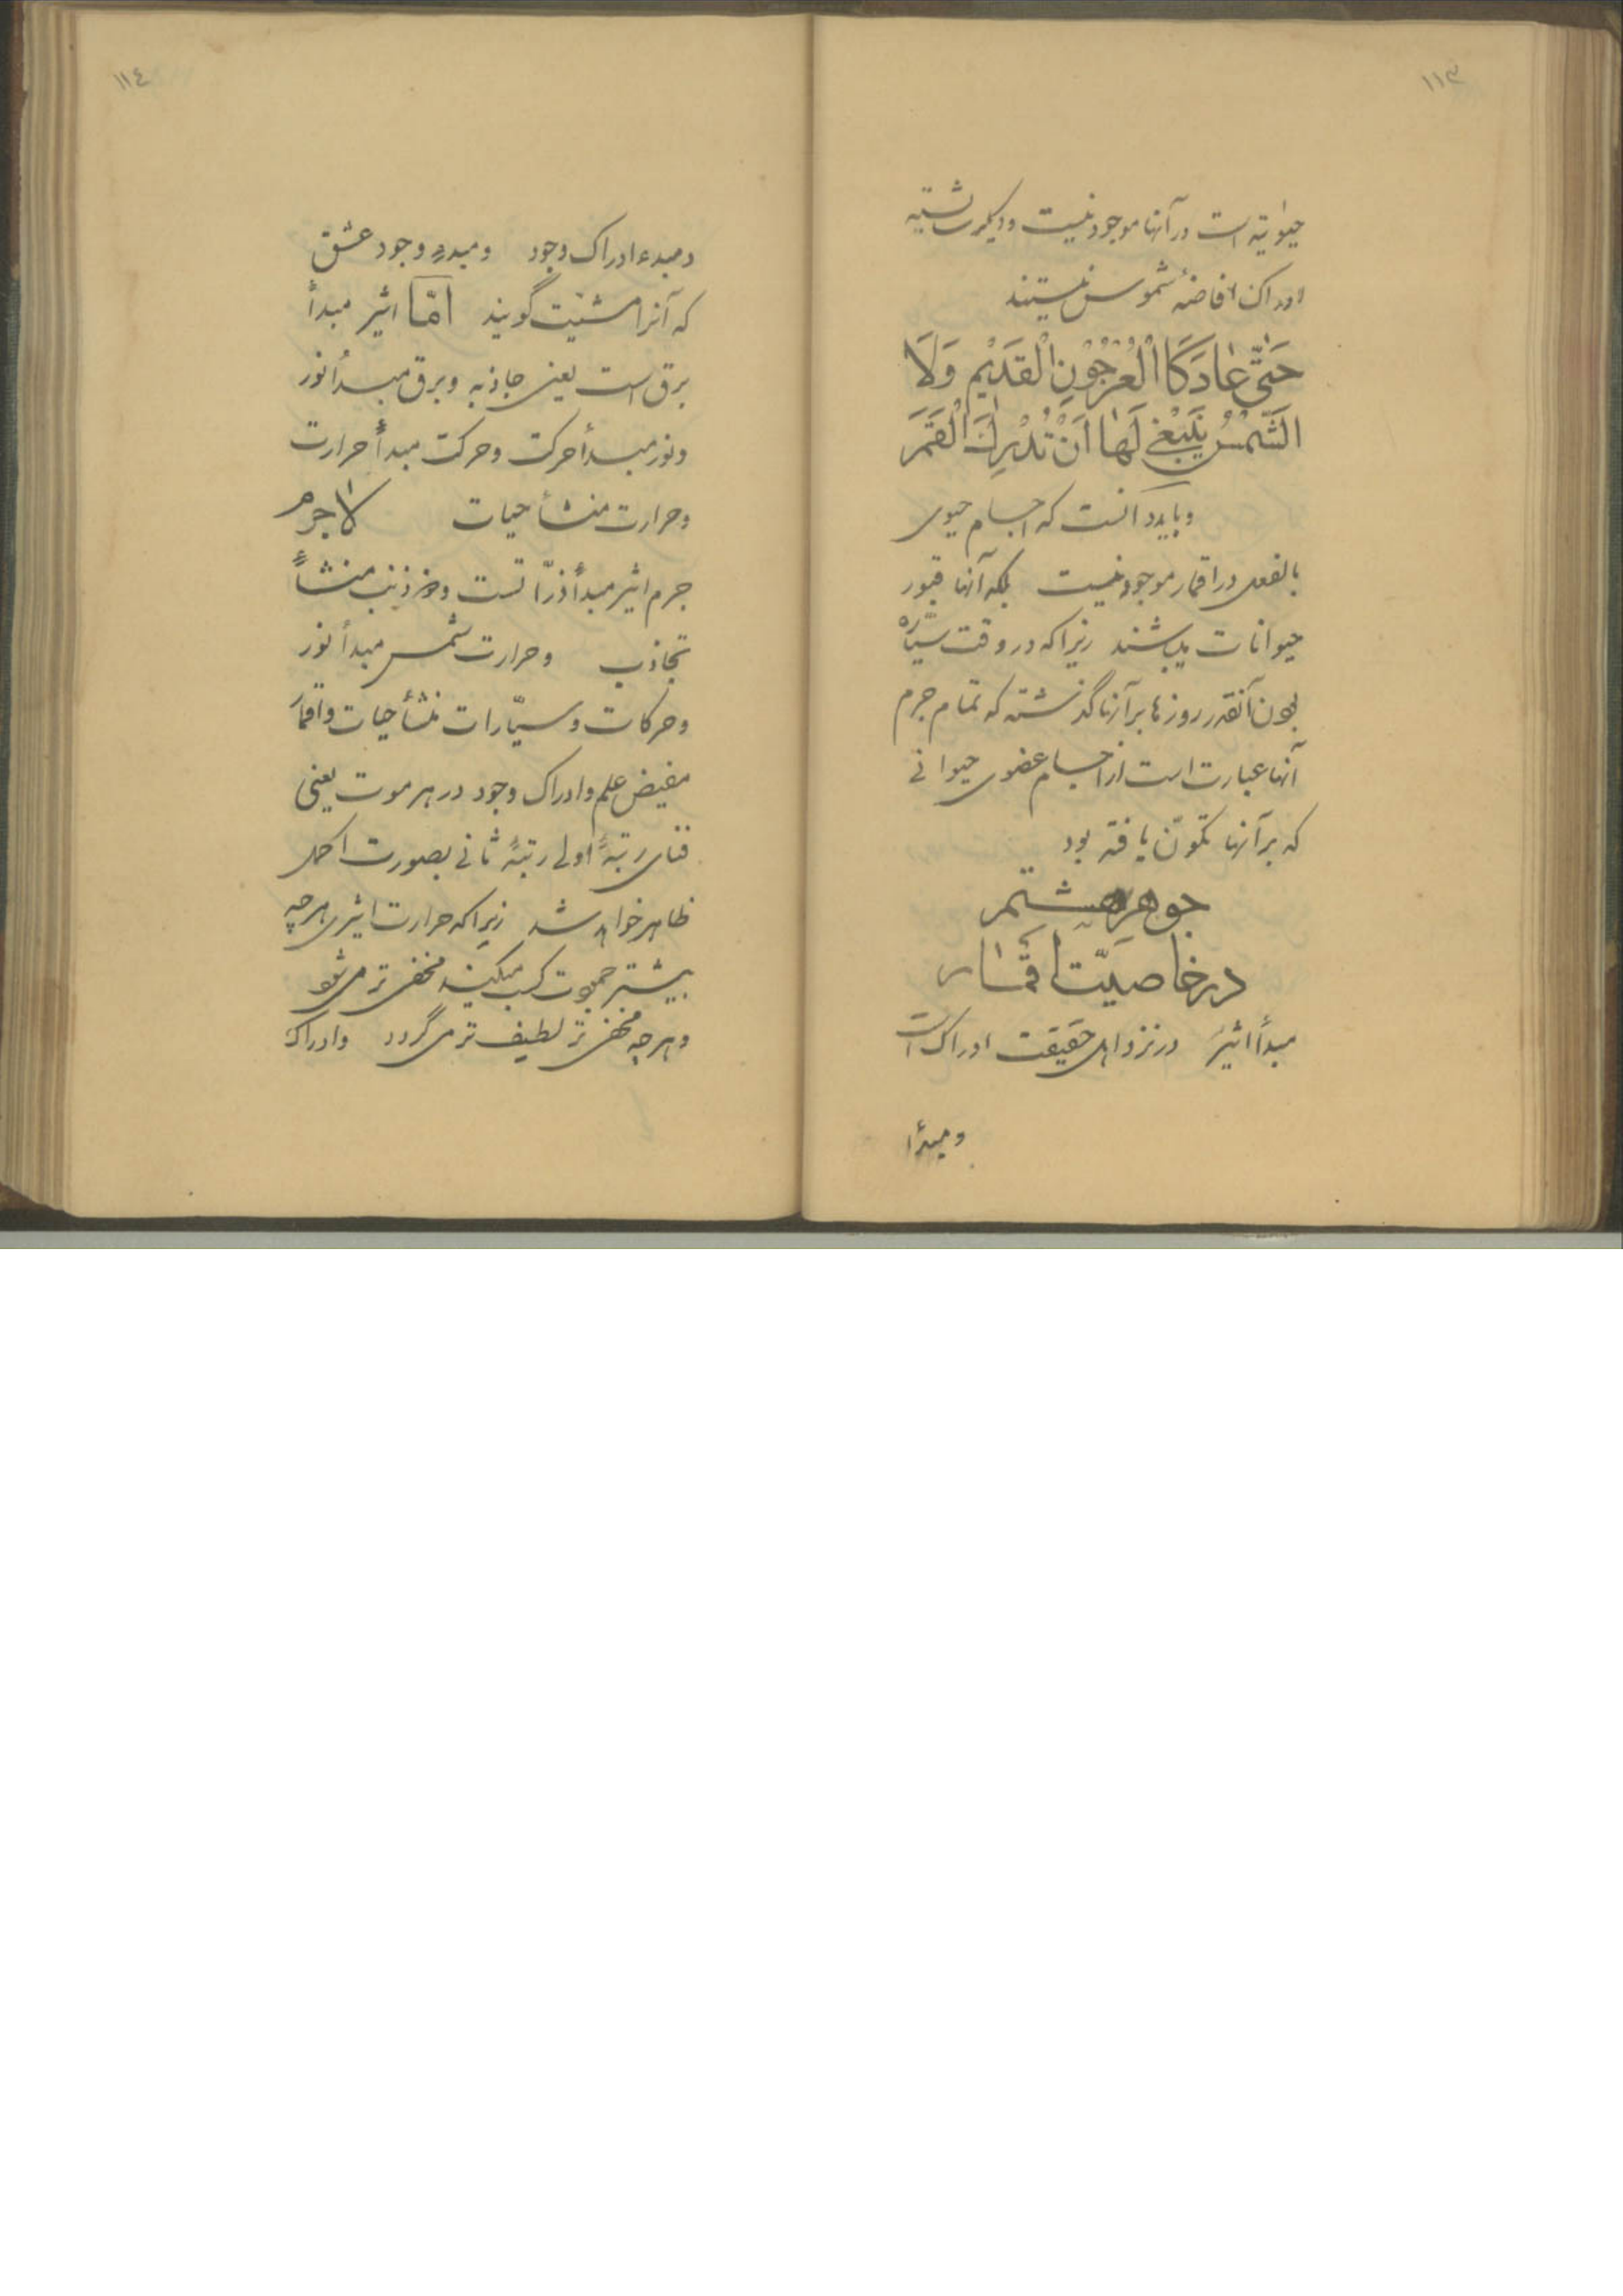 ١١٣
حیوٰتیّه است در آنها موجود نیست و دیگر شایستهٔ
ادراک افاضهٔ شموس نیستند
حَتّیٰ عٰادَ کَا الْعُرْجُوْنِ الْقَدَیْمِ وَلَا
الَشَّمْسُ یَنْبَغی لَهٰا اَنْ تُدْرِكَ الْقَمَرَ
و باید دانست که اجسام حیوی
بالفعل در اقمار موجود نیست بلکه آنها قبور
حیوانات میباشند زیرا که در وقت سیّاره
بودن آنقدر روزها بر آنها گذشته که تمام جرم
آنها عبارت است از اجسام عضوی حیوانی
که بر آنها تکوّن یافته بود
جوهر هشتم
در خاصیّت اقمٰار
مبدأ اثیر در نزد اهل حقیقت ادراک است
و مبدأ
١١٤
و مبدء ادراک وجود و مبدء وجود عشق
که آنرا مشیّت گویند امّا اثیر مبدأ
برق است یعنی جاذبه و برق مبدأ نور
و نور مبدأ حرکت و حرکت مبدأ حرارت
و حرارت منشأ حیات لاجرم
جرم اثیر مبدأ ذرّاتست و منشأ
تجاذب و حرارت شمس مبدأ نور
و حرکات و سیّارات منشأ حیات و اقمار
مفیض علم و ادراک وجود در هر موت یعنی
فنای رتبهٔ اولی رتبهٔ ثانی بصورت اکمل
ظاهر خواهد شد زیرا که حرارت اثیری هرچه
بیشتر جموت کسب میکند مخفی تر می شود
و هرچه مخفی تر لطیف تر می گردد و ادراک